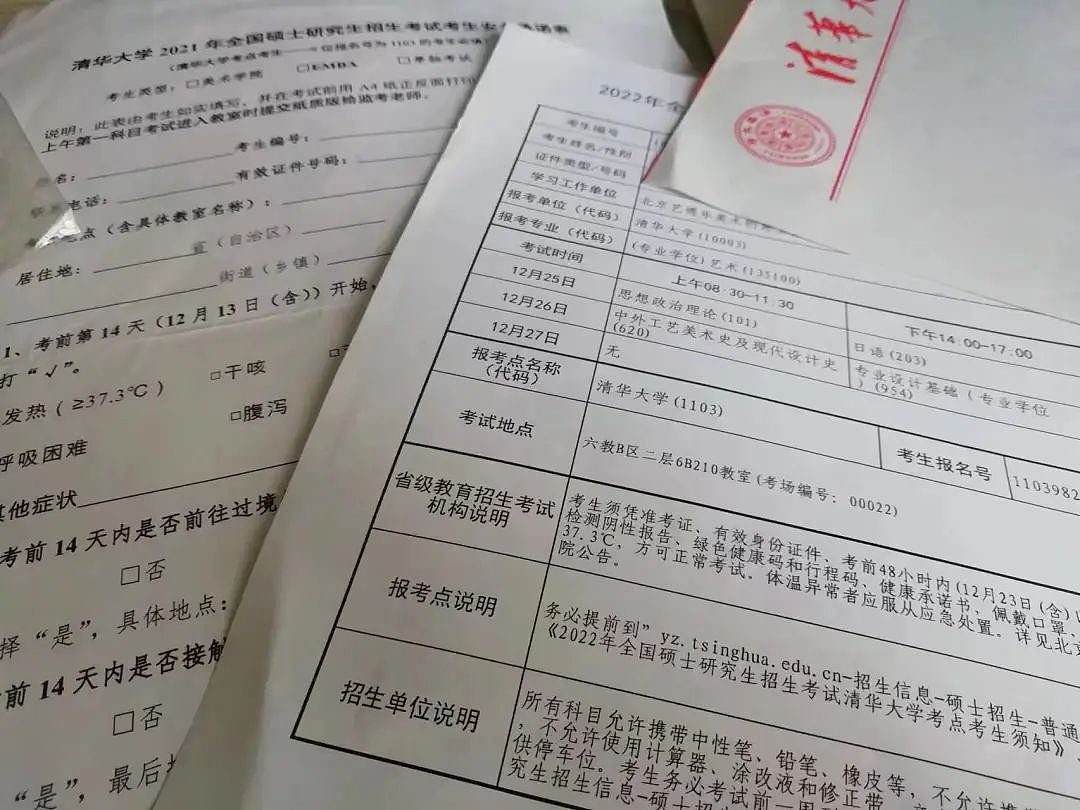 清华大学 2021 年全国硕士研究生招生考试考生安
(清华大学考点考生
1103 的考生必填
考生类型：□美术学院 □EMBA □单独考试
说明：此表由考生如实填写，并在考试前用 A4 纸正反面打印
上午第一科目考试进入教室时提交纸质版给监考老师。
名： 考生编号：
电话： 有效证件号码：
地点（含具体教室名称）：
居住地： 省（自治区）
街道（乡镇）
1、考前第 14 天（12 月 13 日（含））开始，
打“√”。
发热（≥37.3℃） □干咳
呼吸困难 □腹泻
其他症状
考前 14 天内是否前往过境
□否
择“是”，具体地点：
前 14 天内是否接触
□否
“是”，最后
清华大
2022年全
考生编号
考生姓名/性别
证件类型/号码
学习工作单位 北京艺
报考单位（代码） 清华大学(10003)
报考专业（代码） (专业学位)艺术(135100)
考试时间 上午08:30-11:30 下午14:00-17:00
12月25日 思想政治理论(101) 日语(203)
12月26日 中外工艺美术史及现代设计史(620) 专业设计基础（专业学位）(954)
12月27日 无
报考点名称（代码） 清华大学(1103) 考生报名号 1103982
考试地点 六教B区二层6B210教室(考场编号：00022)
省级教育招生考试机构说明
考生须凭准考证、有效身份证件、考前48小时内(12月23日(含)
检测阴性报告、绿色健康码和行程码，健康承诺书、佩戴口罩，
37.3℃，方可正常考试。体温异常者应服从应急处置。详见北京
院公告。
报考点说明
务必提前到”yz.tsinghua.edu.cn-招生信息-硕士招生-普通
《2022年全国硕士研究生招生考试清华大学考点考生须知》
招生单位说明
所有科目允许携带中性笔、铅笔、橡皮等，不允许
，不允许使用计算器、涂改液和修正带
供停车位。考生务必考试前一周
究生招生信息-硕士招